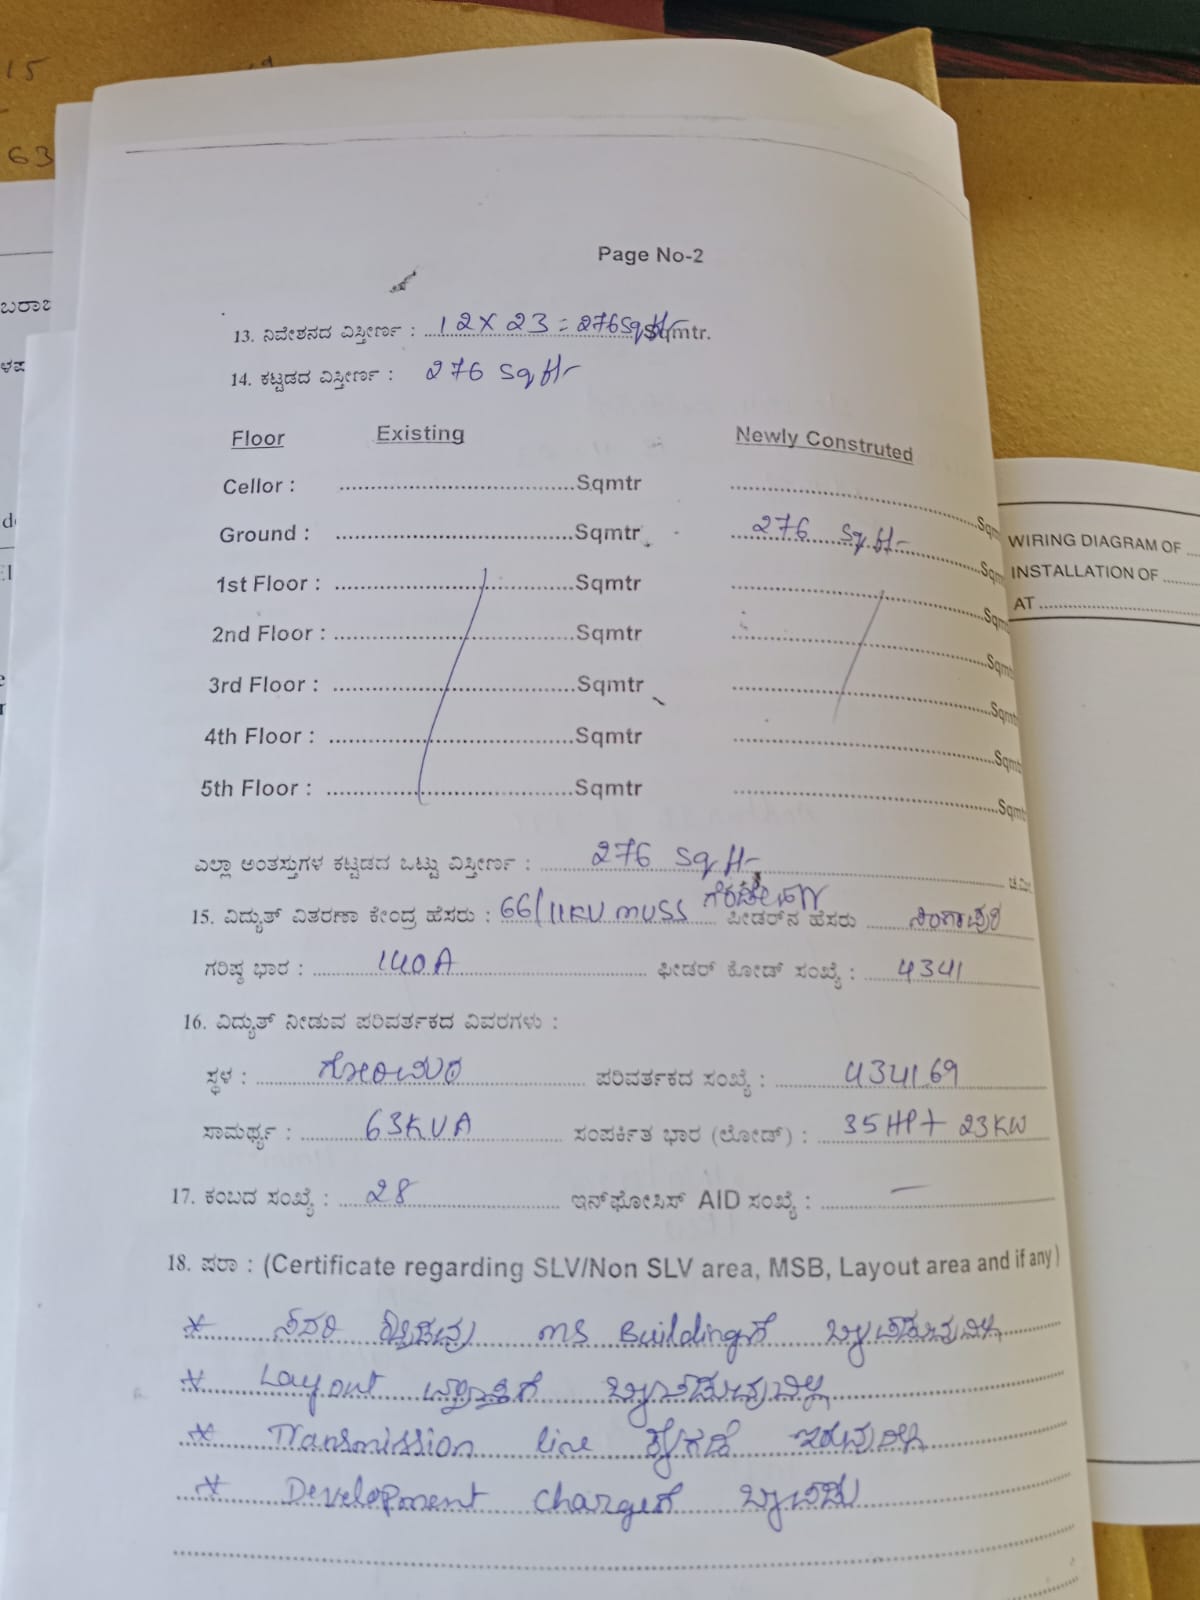 15
63
ಬರಾಜ
ಳಪ
Page No-2
13. ನಿವೇಶನದ ವಿಸ್ತೀರ್ಣ : 12 X 23 = 276 Sq ft Sqmtr.
14. ಕಟ್ಟಡದ ವಿಸ್ತೀರ್ಣ : 276 Sq ft
Floor Existing Newly Construted
Cellor : Sqmtr Sqm
Ground : Sqmtr 276 Sq ft Sqm
1st Floor : Sqmtr Sqm
2nd Floor : Sqmtr Sqm
3rd Floor : Sqmtr Sqm
4th Floor : Sqmtr Sqm
5th Floor : Sqmtr Sqm
ಎಲ್ಲಾ ಅಂತಸ್ತುಗಳ ಕಟ್ಟಡದ ಒಟ್ಟು ವಿಸ್ತೀರ್ಣ : 276 Sq ft ಚ.ಮೀ
15. ವಿದ್ಯುತ್ ವಿತರಣಾ ಕೇಂದ್ರ ಹೆಸರು : 66/11KV MUSS ಫೀಡರ್‌ನ ಹೆಸರು
ಗರಿಷ್ಠ ಭಾರ : 140A ಫೀಡರ್ ಕೋಡ್ ಸಂಖ್ಯೆ : 4341
16. ವಿದ್ಯುತ್ ನೀಡುವ ಪರಿವರ್ತಕದ ವಿವರಗಳು :
ಸ್ಥಳ : ಪರಿವರ್ತಕದ ಸಂಖ್ಯೆ : 434169
ಸಾಮರ್ಥ್ಯ : 63KVA ಸಂಪರ್ಕಿತ ಭಾರ (ಲೋಡ್) : 35HP + 23KW
17. ಕಂಬದ ಸಂಖ್ಯೆ : 28 ಇನ್‌ಫೋಸಿಸ್ AID ಸಂಖ್ಯೆ : —
18. ಷರಾ : (Certificate regarding SLV/Non SLV area, MSB, Layout area and if any )
* ಸದರಿ ಕಟ್ಟಡವು MS Buildingಗೆ ಒಳಪಡುವುದಿಲ್ಲ
* Layout ವ್ಯಾಪ್ತಿಗೆ ಒಳಪಡುವುದಿಲ್ಲ
* Transmission line ಕೆಳಗಡೆ ಇರುವುದಿಲ್ಲ
* Development chargeಗೆ
WIRING DIAGRAM OF
INSTALLATION OF
AT